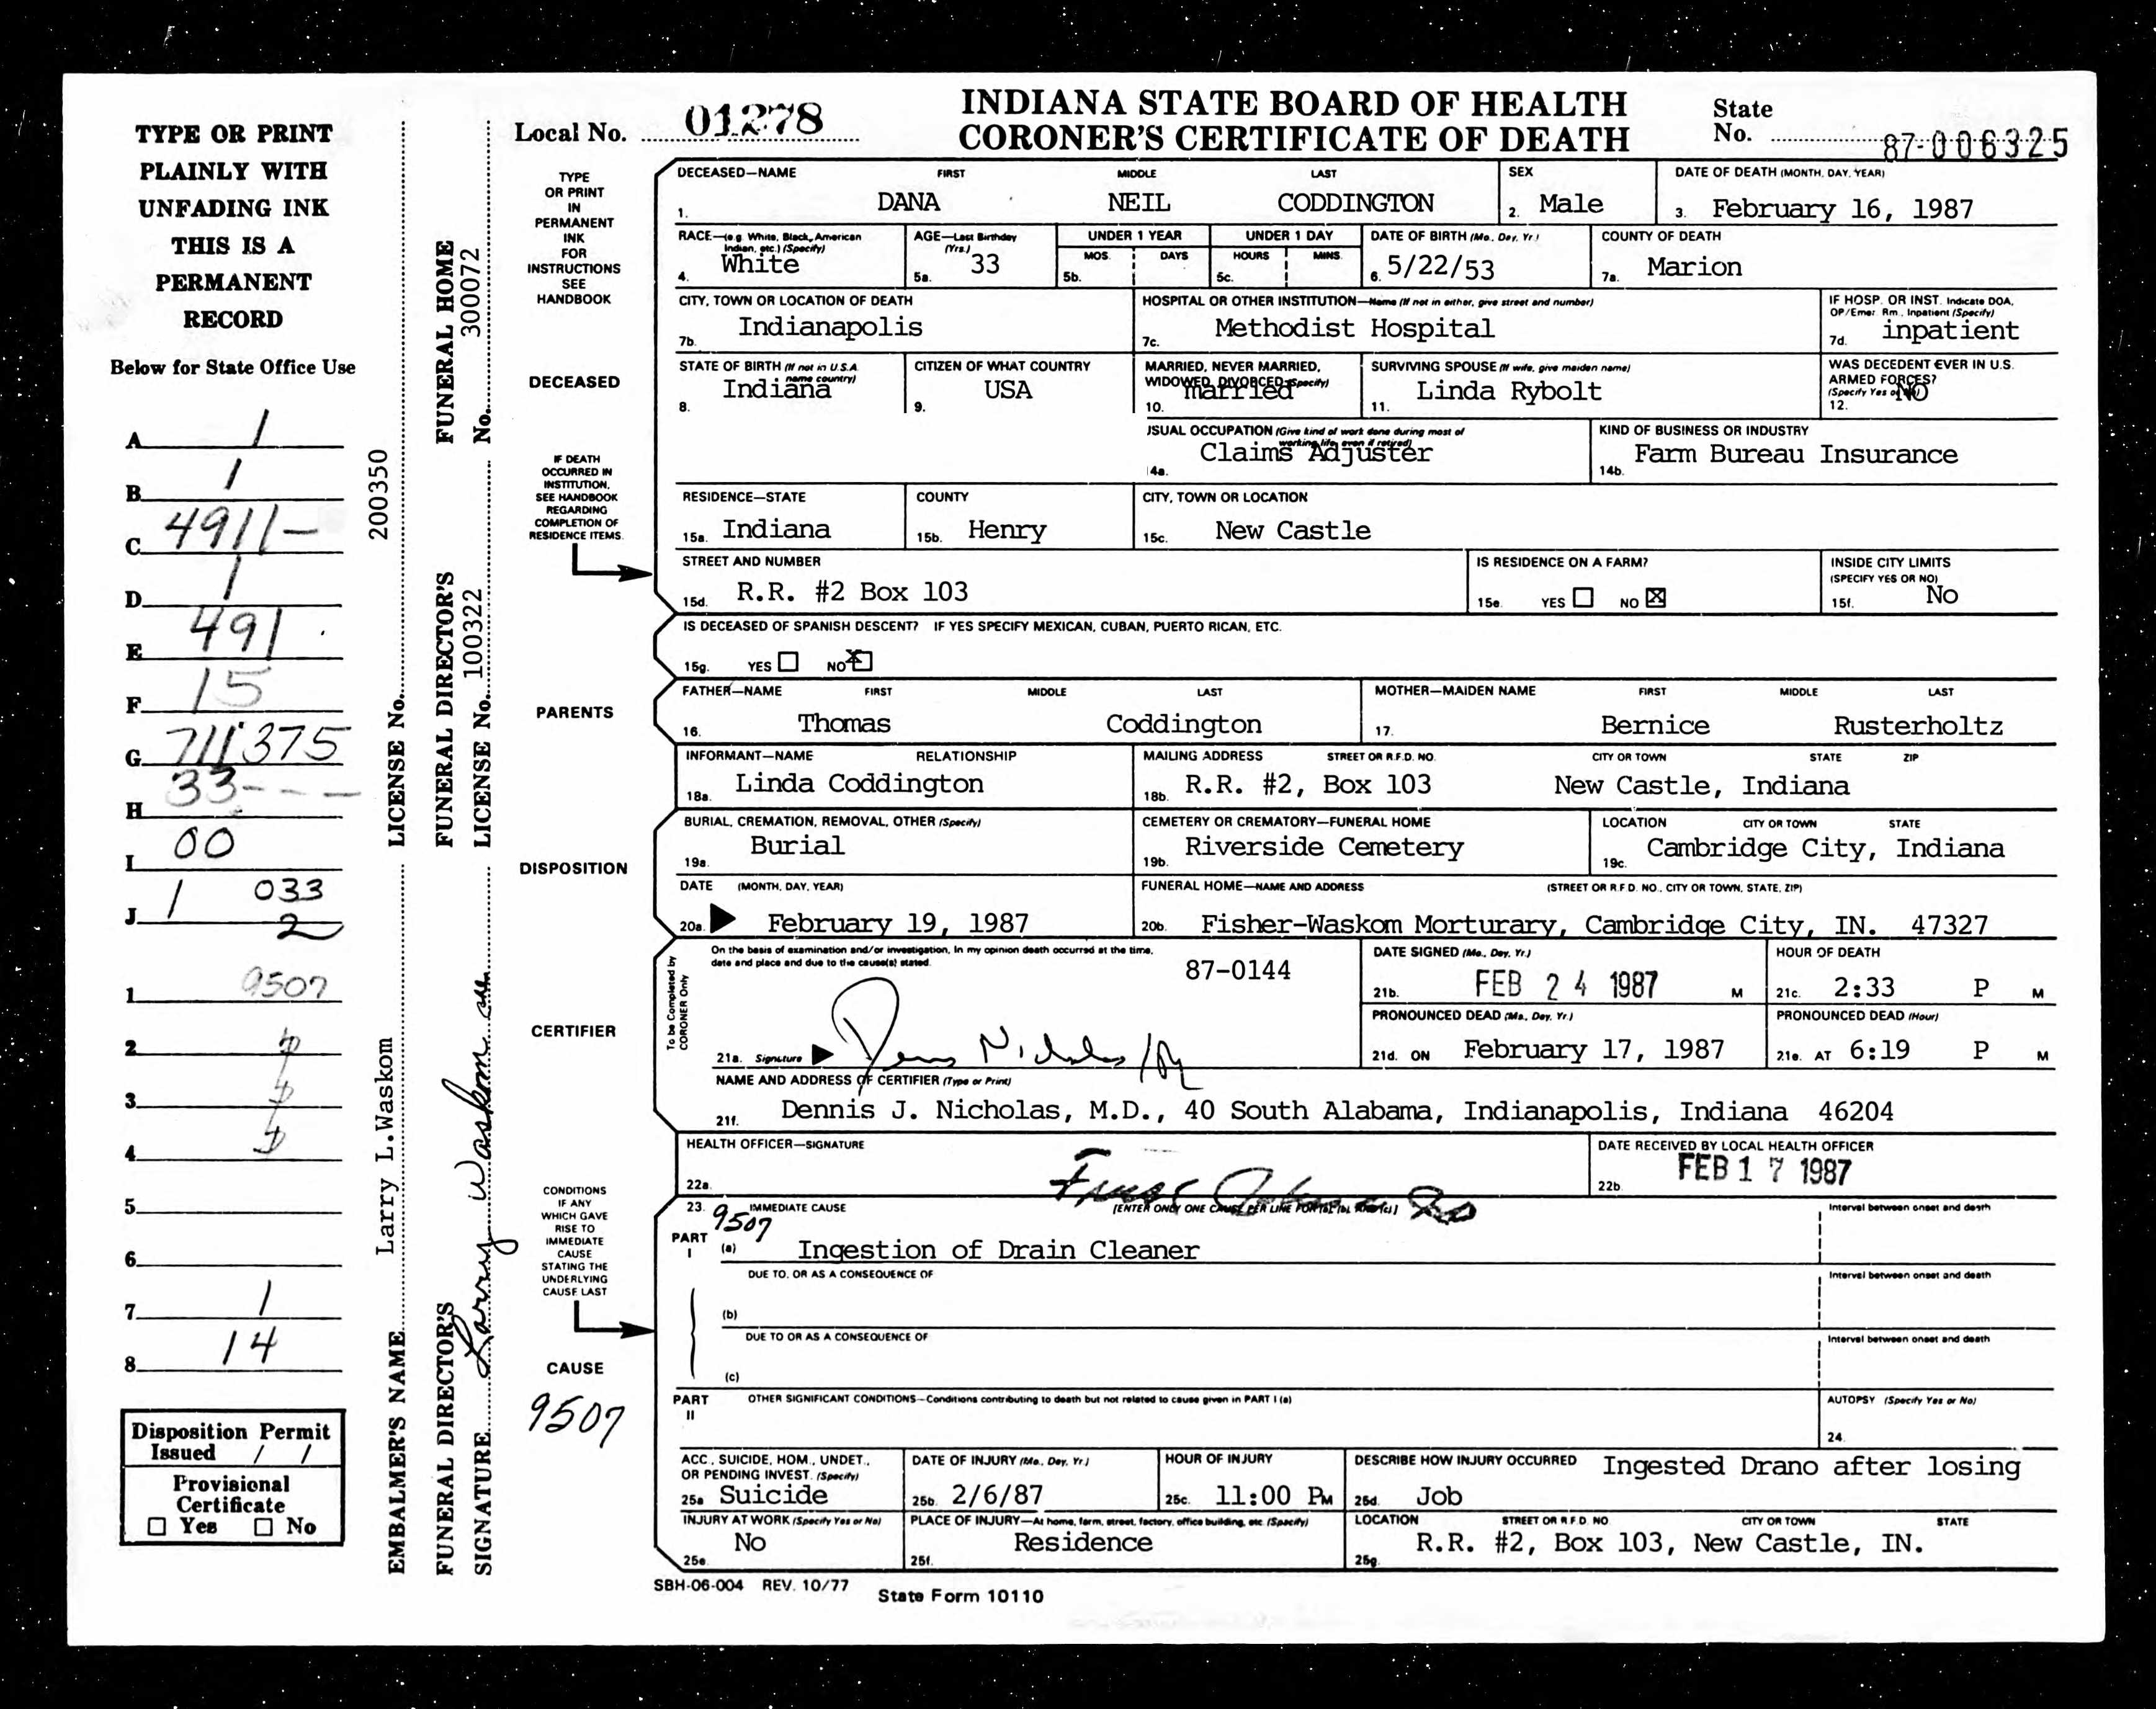 TYPE OR PRINT
PLAINLY WITH
UNFADING INK
THIS IS A
PERMANENT
RECORD
Below for State Office Use
A 1
B 1
C 4911-
D 1
E 491
F 15
G 711375
H 33---
I 00
J 1 033
2
1 9507
2
3
4
5
6
7 1
8 14
Disposition Permit
Issued / /
Provisional
Certificate
☐ Yes ☐ No
EMBALMER'S NAME Larry L.Waskom LICENSE No. 200350
FUNERAL DIRECTOR'S
SIGNATURE Larry Waskom
FUNERAL DIRECTOR'S
LICENSE No. 100322
FUNERAL HOME
No. 300072
Local No. 01278
INDIANA STATE BOARD OF HEALTH
CORONER'S CERTIFICATE OF DEATH
State
No. 87-006325
TYPE
OR PRINT
IN
PERMANENT
INK
FOR
INSTRUCTIONS
SEE
HANDBOOK
DECEASED
IF DEATH
OCCURRED IN
INSTITUTION,
SEE HANDBOOK
REGARDING
COMPLETION OF
RESIDENCE ITEMS.
PARENTS
DISPOSITION
CERTIFIER
CONDITIONS
IF ANY
WHICH GAVE
RISE TO
IMMEDIATE
CAUSE
STATING THE
UNDERLYING
CAUSE LAST
CAUSE
9507
DECEASED—NAME FIRST MIDDLE LAST
1. DANA NEIL CODDINGTON
SEX
2. Male
DATE OF DEATH (MONTH, DAY, YEAR)
3. February 16, 1987
RACE—(e.g. White, Black, American
Indian, etc.) (Specify)
4. White
AGE—Last Birthday
(Yrs.)
5a. 33
UNDER 1 YEAR
MOS. DAYS
5b.
UNDER 1 DAY
HOURS MINS.
5c.
DATE OF BIRTH (Mo., Day, Yr.)
6. 5/22/53
COUNTY OF DEATH
7a. Marion
CITY, TOWN OR LOCATION OF DEATH
7b. Indianapolis
HOSPITAL OR OTHER INSTITUTION—Name (If not in either, give street and number)
7c. Methodist Hospital
IF HOSP. OR INST. Indicate DOA,
OP/Emer. Rm., Inpatient (Specify)
7d. inpatient
STATE OF BIRTH (If not in U.S.A.
name country)
8. Indiana
CITIZEN OF WHAT COUNTRY
9. USA
MARRIED, NEVER MARRIED,
WIDOWED, DIVORCED (Specify)
10. married
SURVIVING SPOUSE (If wife, give maiden name)
11. Linda Rybolt
WAS DECEDENT EVER IN U.S.
ARMED FORCES?
(Specify Yes or No)
12. NO
USUAL OCCUPATION (Give kind of work done during most of
working life, even if retired)
14a. Claims Adjuster
KIND OF BUSINESS OR INDUSTRY
14b. Farm Bureau Insurance
RESIDENCE—STATE
15a. Indiana
COUNTY
15b. Henry
CITY, TOWN OR LOCATION
15c. New Castle
STREET AND NUMBER
15d. R.R. #2 Box 103
IS RESIDENCE ON A FARM?
15e. YES ☐ NO ☒
INSIDE CITY LIMITS
(SPECIFY YES OR NO)
15f. No
IS DECEASED OF SPANISH DESCENT? IF YES SPECIFY MEXICAN, CUBAN, PUERTO RICAN, ETC.
15g. YES ☐ NO ☒
FATHER—NAME FIRST MIDDLE LAST
16. Thomas Coddington
MOTHER—MAIDEN NAME FIRST MIDDLE LAST
17. Bernice Rusterholtz
INFORMANT—NAME RELATIONSHIP
18a. Linda Coddington
MAILING ADDRESS STREET OR R.F.D. NO. CITY OR TOWN STATE ZIP
18b. R.R. #2, Box 103 New Castle, Indiana
BURIAL, CREMATION, REMOVAL, OTHER (Specify)
19a. Burial
CEMETERY OR CREMATORY—FUNERAL HOME
19b. Riverside Cemetery
LOCATION CITY OR TOWN STATE
19c. Cambridge City, Indiana
DATE (MONTH, DAY, YEAR)
20a. February 19, 1987
FUNERAL HOME—NAME AND ADDRESS (STREET OR R.F.D. NO., CITY OR TOWN, STATE, ZIP)
20b. Fisher-Waskom Morturary, Cambridge City, IN. 47327
To be Completed by
CORONER Only
On the basis of examination and/or investigation, in my opinion death occurred at the time,
date and place and due to the cause(s) stated.
87-0144
21a. Signature
DATE SIGNED (Mo., Day, Yr.)
21b. FEB 24 1987 M
HOUR OF DEATH
21c. 2:33 P M
PRONOUNCED DEAD (Mo., Day, Yr.)
21d. ON February 17, 1987
PRONOUNCED DEAD (Hour)
21e. AT 6:19 P M
NAME AND ADDRESS OF CERTIFIER (Type or Print)
21f. Dennis J. Nicholas, M.D., 40 South Alabama, Indianapolis, Indiana 46204
HEALTH OFFICER—SIGNATURE
22a.
DATE RECEIVED BY LOCAL HEALTH OFFICER
22b. FEB 17 1987
23. IMMEDIATE CAUSE [ENTER ONLY ONE CAUSE PER LINE FOR (a), (b), AND (c)]
9507
PART I
(a) Ingestion of Drain Cleaner
Interval between onset and death
DUE TO, OR AS A CONSEQUENCE OF
(b)
Interval between onset and death
DUE TO OR AS A CONSEQUENCE OF
(c)
Interval between onset and death
PART II
OTHER SIGNIFICANT CONDITIONS—Conditions contributing to death but not related to cause given in PART I (a)
AUTOPSY (Specify Yes or No)
24.
ACC., SUICIDE, HOM., UNDET.,
OR PENDING INVEST. (Specify)
25a Suicide
DATE OF INJURY (Mo., Day, Yr.)
25b. 2/6/87
HOUR OF INJURY
25c. 11:00 PM
DESCRIBE HOW INJURY OCCURRED Ingested Drano after losing
25d. Job
INJURY AT WORK (Specify Yes or No)
25e. No
PLACE OF INJURY—At home, farm, street, factory, office building, etc. (Specify)
25f. Residence
LOCATION STREET OR R.F.D. NO. CITY OR TOWN STATE
25g. R.R. #2, Box 103, New Castle, IN.
SBH-06-004 REV. 10/77 State Form 10110